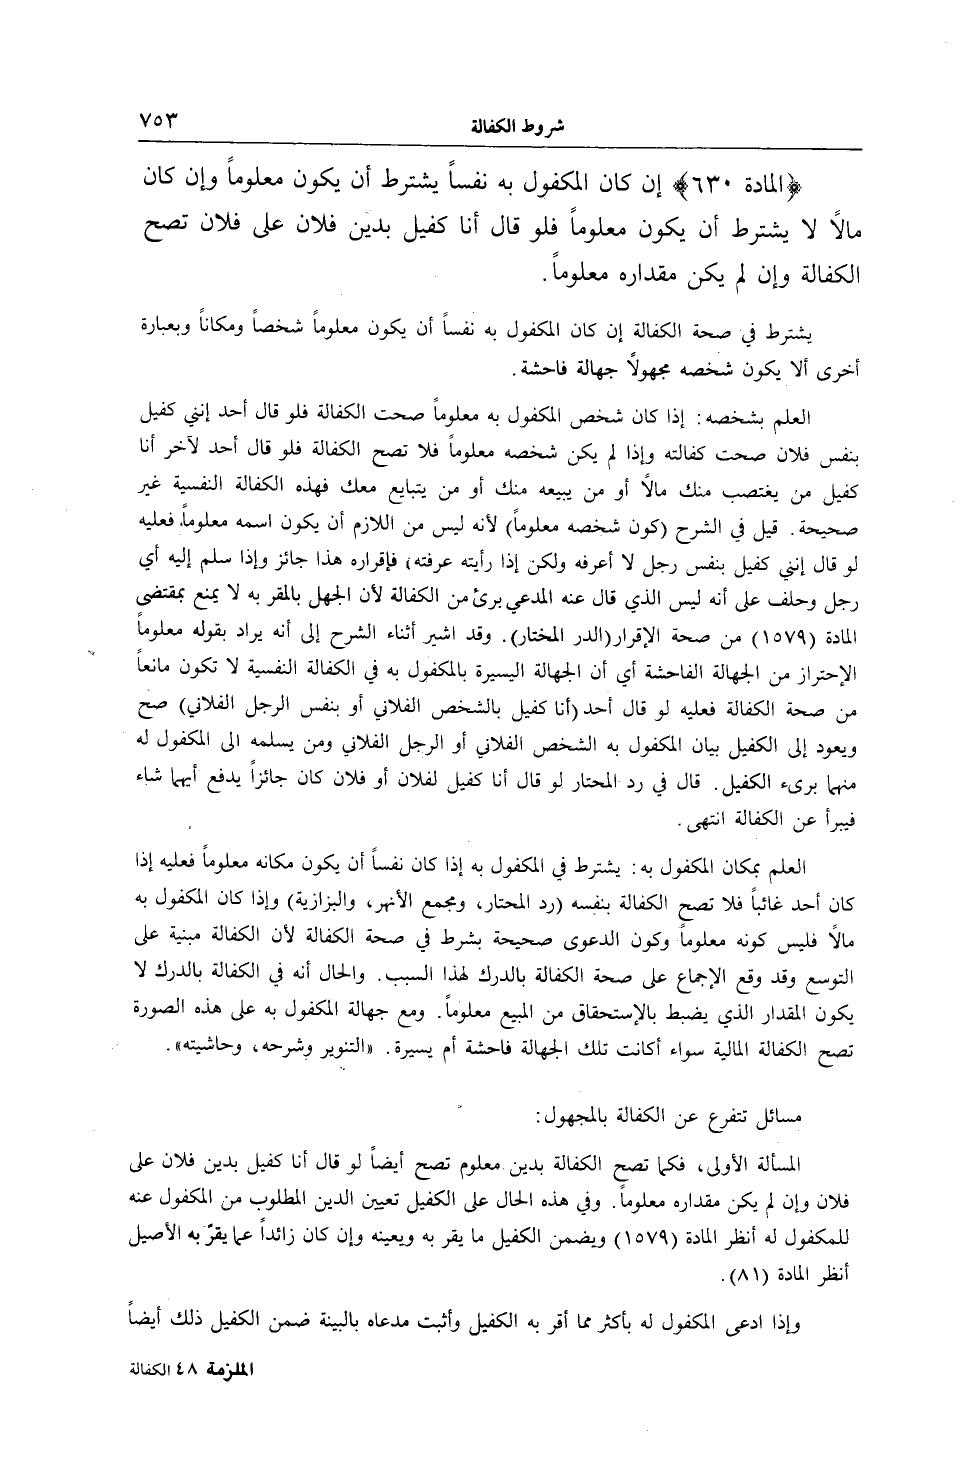 شروط الكفالة ٧٥٣
﴿المادة ٦٣٠﴾ إن كان المكفول به نفساً يشترط أن يكون معلوماً وإن كان
مالاً لا يشترط أن يكون معلوماً فلو قال أنا كفيل بدين فلان على فلان تصح
الكفالة وإن لم يكن مقداره معلوماً.
يشترط في صحة الكفالة إن كان المكفول به نفساً أن يكون معلوماً شخصاً ومكاناً وبعبارة
أخرى ألا يكون شخصه مجهولاً جهالة فاحشة.
العلم بشخصه: إذا كان شخص المكفول به معلوماً صحت الكفالة فلو قال أحد إنني كفيل
بنفس فلان صحت كفالته وإذا لم يكن شخصه معلوماً فلا تصح الكفالة فلو قال أحد لآخر أنا
كفيل من يغتصب منك مالاً أو من يبيعه منك أو من يتبايع معك فهذه الكفالة النفسية غير
صحيحة. قيل في الشرح (كون شخصه معلوماً) لأنه ليس من اللازم أن يكون اسمه معلوماً، فعليه
لو قال إنني كفيل بنفس رجل لا أعرفه ولكن إذا رأيته عرفته، فإقراره هذا جائز وإذا سلم إليه أي
رجل وحلف على أنه ليس الذي قال عنه المدعي برئ من الكفالة لأن الجهل بالمقر به لا يمنع بمقتضى
المادة (١٥٧٩) من صحة الإقرار(الدر المختار). وقد اشير أثناء الشرح إلى أنه يراد بقوله معلوماً
الإحتراز من الجهالة الفاحشة أي أن الجهالة اليسيرة بالمكفول به في الكفالة النفسية لا تكون مانعاً
من صحة الكفالة فعليه لو قال أحد (أنا كفيل بالشخص الفلاني أو بنفس الرجل الفلاني) صح
ويعود إلى الكفيل بيان المكفول به الشخص الفلاني أو الرجل الفلاني ومن يسلمه الى المكفول له
منهما برىء الكفيل. قال في رد المحتار لو قال أنا كفيل لفلان أو فلان كان جائزاً يدفع أيهما شاء
فيبرأ عن الكفالة انتهى.
العلم بمكان المكفول به: يشترط في المكفول به إذا كان نفساً أن يكون مكانه معلوماً فعليه إذا
كان أحد غائباً فلا تصح الكفالة بنفسه (رد المحتار، ومجمع الأنهر، والبزازية) وإذا كان المكفول به
مالاً فليس كونه معلوماً وكون الدعوى صحيحة بشرط في صحة الكفالة لأن الكفالة مبنية على
التوسع وقد وقع الإجماع على صحة الكفالة بالدرك لهذا السبب. والحال أنه في الكفالة بالدرك لا
يكون المقدار الذي يضبط بالإستحقاق من المبيع معلوماً. ومع جهالة المكفول به على هذه الصورة
تصح الكفالة المالية سواء أكانت تلك الجهالة فاحشة أم يسيرة. «التنوير وشرحه، وحاشيته».
مسائل تتفرع عن الكفالة بالمجهول:
المسألة الأولى، فكما تصح الكفالة بدين معلوم تصح أيضاً لو قال أنا كفيل بدين فلان على
فلان وإن لم يكن مقداره معلوماً. وفي هذه الحال على الكفيل تعيين الدين المطلوب من المكفول عنه
للمكفول له أنظر المادة (١٥٧٩) ويضمن الكفيل ما يقر به ويعينه وإن كان زائداً عما يقرّ به الأصيل
أنظر المادة (٨١).
وإذا ادعى المكفول له بأكثر مما أقر به الكفيل وأثبت مدعاه بالبينة ضمن الكفيل ذلك أيضاً
الملزمة ٤٨ الكفالة